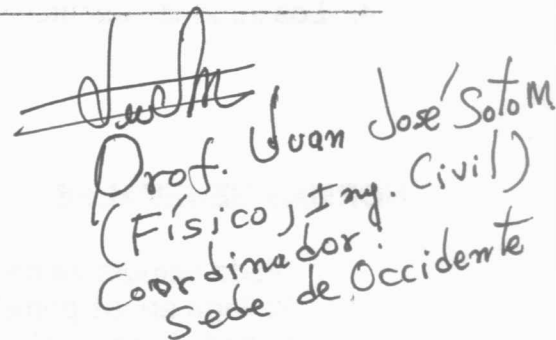 Prof. Juan José Soto M.
(Físico, Ing. Civil)
Coordinador.
Sede de Occidente